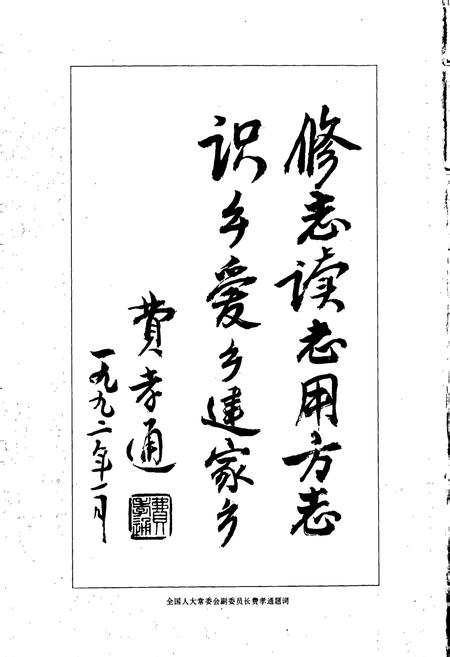 修志读志用方志
识乡爱乡建家乡
費孝通
一九九二年一月
費孝通
全国人大常委会副委员长费孝通题词